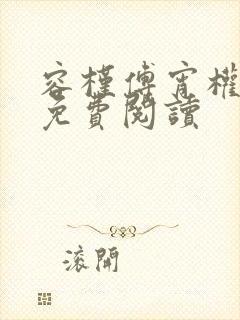 容槿傅宵權
免費閱讀
滾開